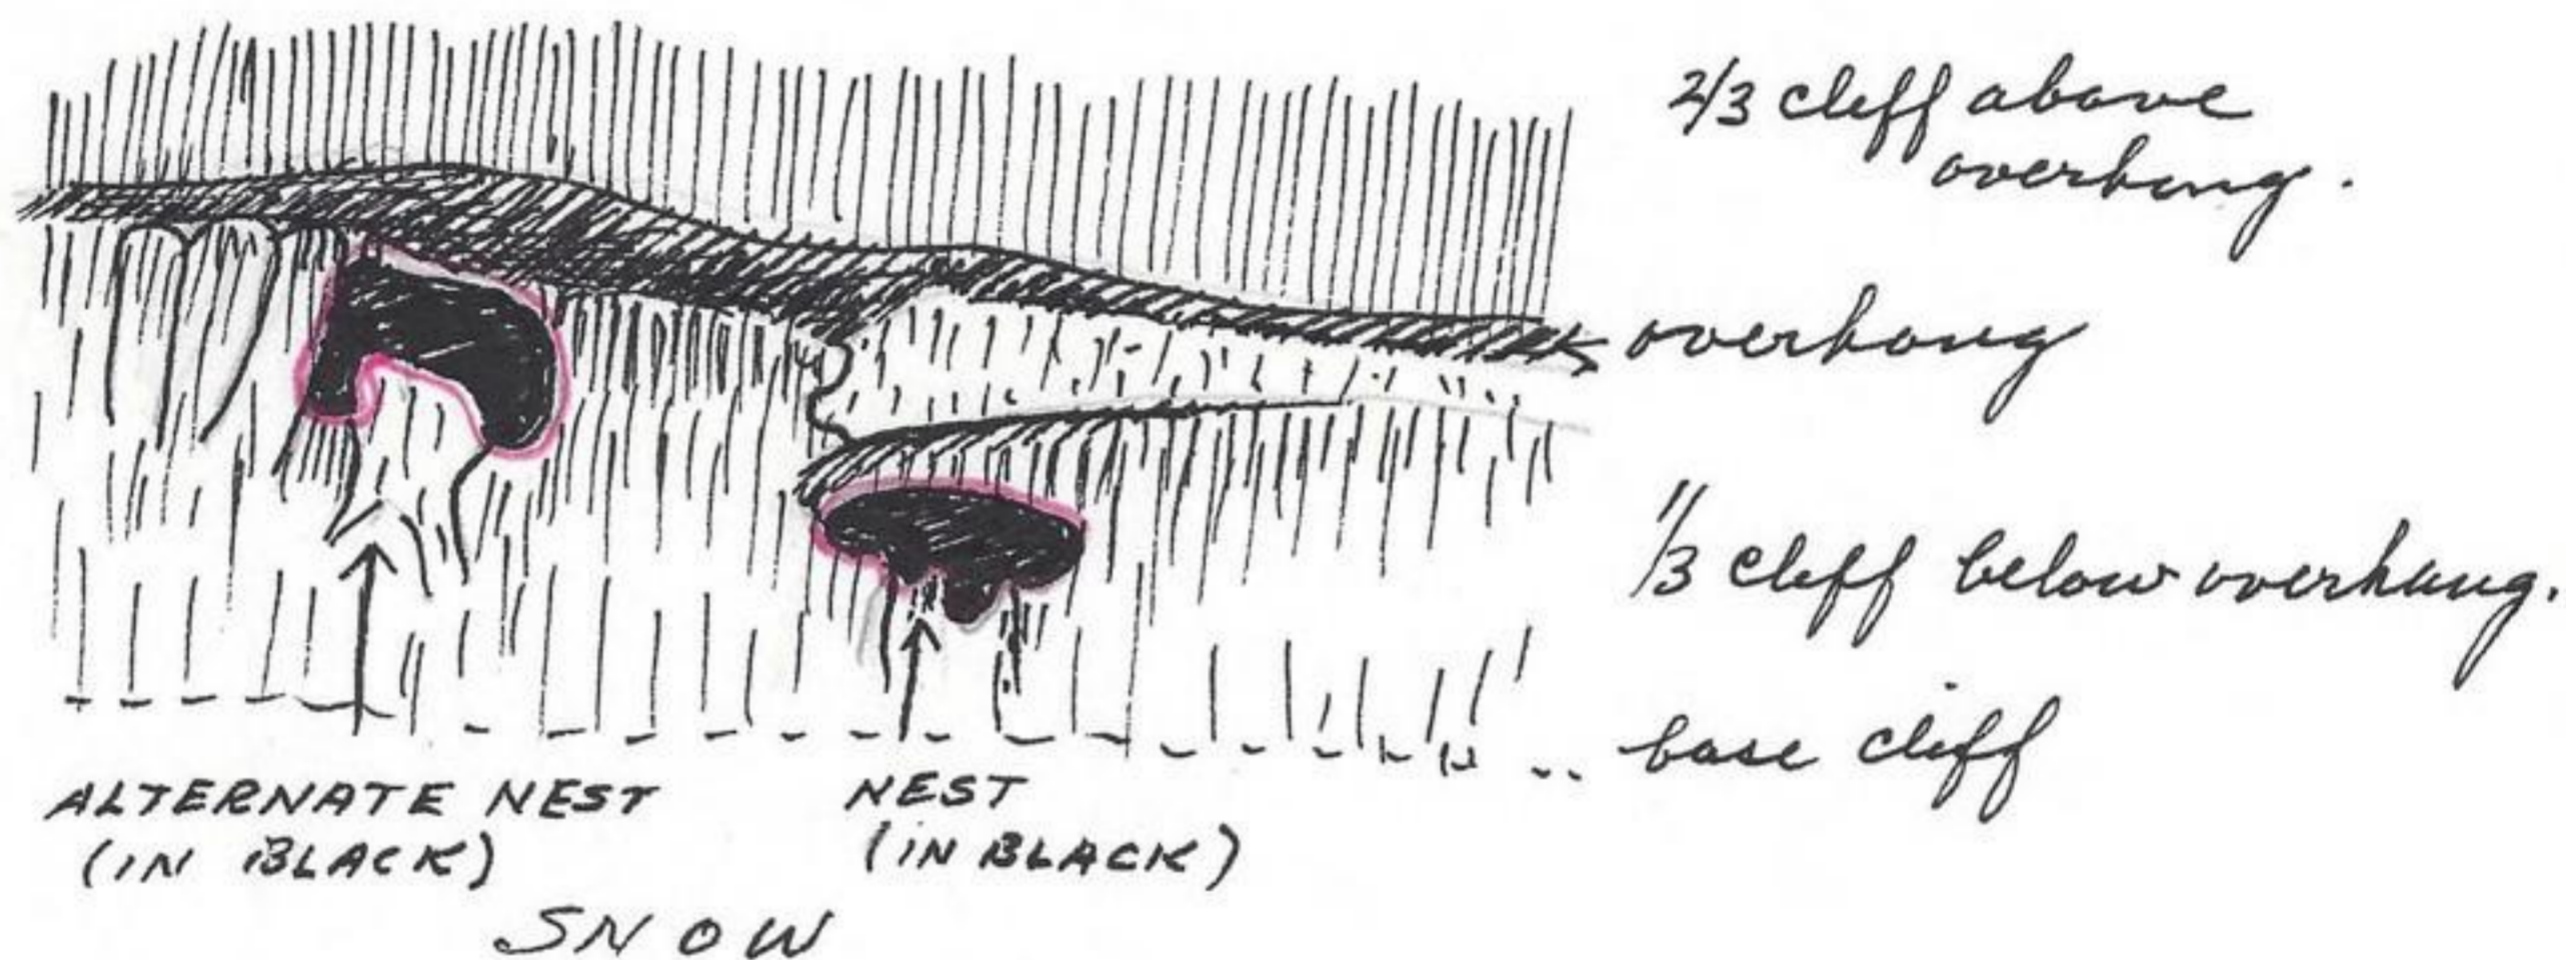 2/3 cliff above
overhang.
overhang
1/3 cliff below overhang.
base cliff
ALTERNATE NEST
(IN BLACK)
NEST
(IN BLACK)
SNOW